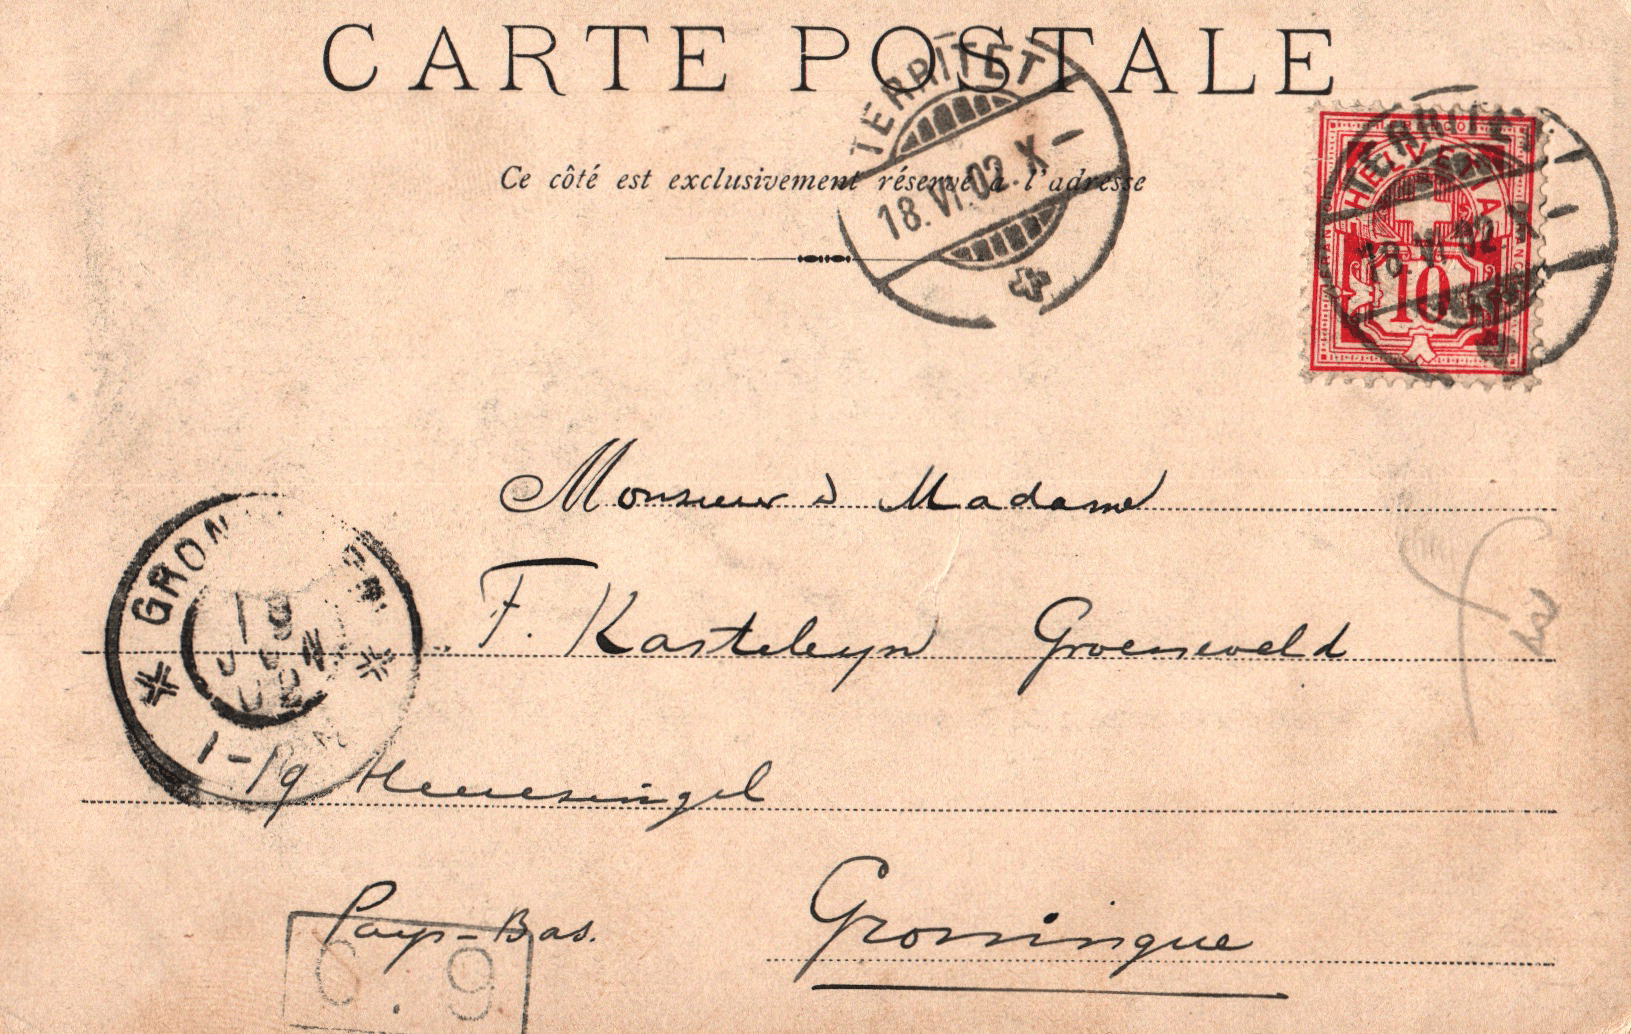 CARTE POSTALE
TERRITET
18.VI.02.X
Ce côté est exclusivement réservé à l'adresse
TERRITET
18.VI.02 X
HELVETIA
FRANCO
10
Monsieur & Madame
F. Kasteleyn Groeneveld
GRON
19
JUN
02
1-
19 Heeresingel
Pays-Bas.
Groningue
6.9